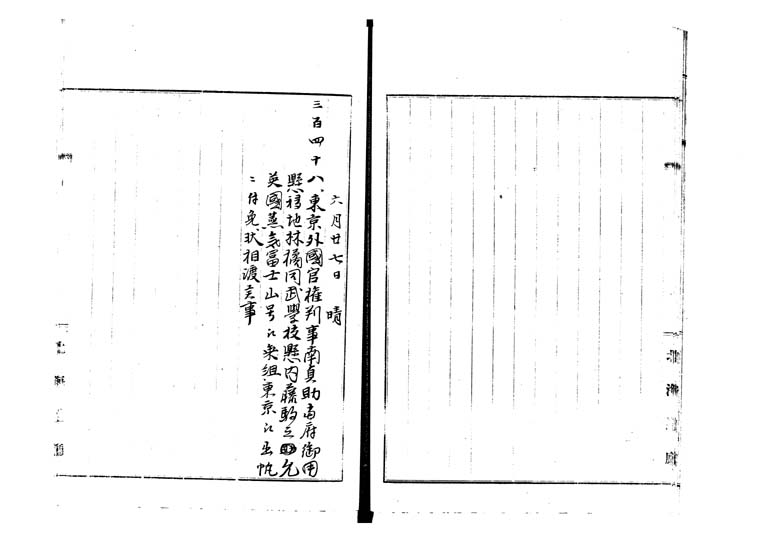 六月廿七日 晴
三百四十八、東京外國官権判事南貞助当府御用
懸得地林橘同武學校懸内藤駒之允
英國蒸気冨士山号江乗組東京江出帆
ニ付免状相渡云事